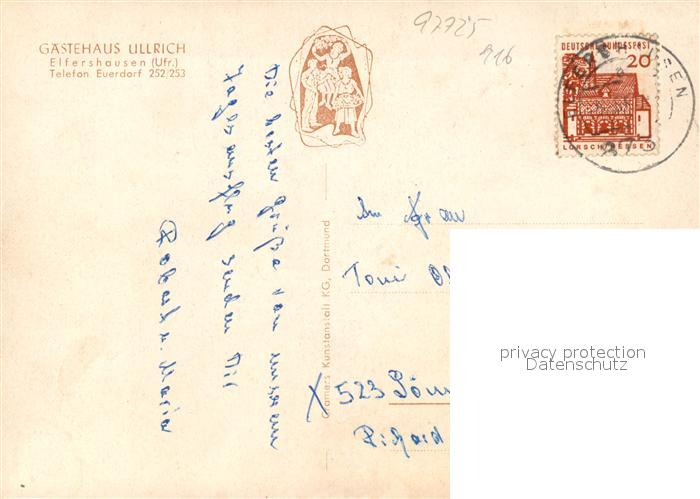 97725
916
GÄSTEHAUS ULLRICH
Elfershausen (Ufr.)
Telefon Euerdorf 252/253
DEUTSCHE BUNDESPOST
20
LORSCH/HESSEN
Die besten Grüße von unserem
Tagesausflug senden Dir
Robert u. Maria
Cramers Kunstanstalt KG, Dortmund
An Frau
Toni
X 523
Richard
privacy protection
Datenschutz